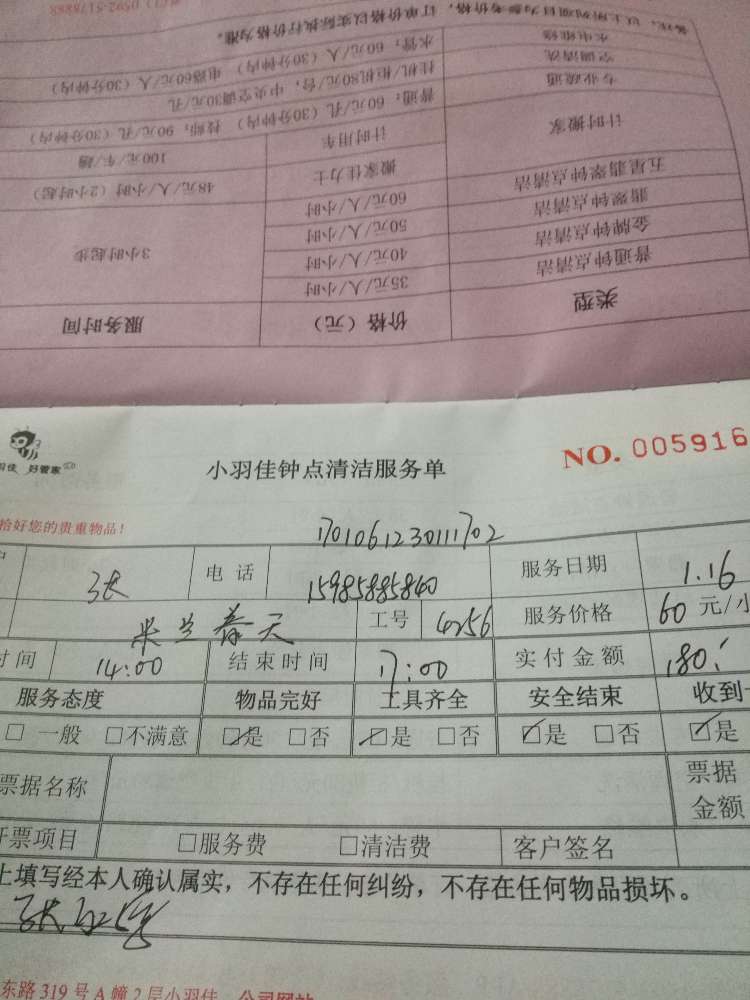 0592-5178888
备注：以上所列项目为参考价格，订单价格以实际执行价格为准。
水电维修 水管：60元/人（30分钟内） 电路60元/人（30分钟内）
空调清洗 挂机/柜机80元/台，中央空调30元/孔
专业疏通 普通：60元/孔（30分钟内） 技师：90元/孔（30分钟内）
计时搬家 计时用车 100元/车/趟
搬家佳力士 48元/人/小时（2小时起）
五星翡翠钟点清洁 60元/人/小时
翡翠钟点清洁 50元/人/小时 3小时起步
金牌钟点清洁 40元/人/小时
普通钟点清洁 35元/人/小时
类型 价格（元） 服务时间
羽佳 好管家
小羽佳钟点清洁服务单 NO. 005916
拾好您的贵重物品！
1701061230111702
张 电话 15985885840 服务日期 1.16
米兰春天 工号 4256 服务价格 60 元/小
时间 14:00 结束时间 17:00 实付金额 180
服务态度 物品完好 工具齐全 安全结束 收到
□ 一般 □不满意 ☑是 □否 ☑是 □否 ☑是 □否 ☑是
票据名称 票据金额
开票项目 □服务费 □清洁费 客户签名
上填写经本人确认属实，不存在任何纠纷，不存在任何物品损坏。
东路319号A幢2层小羽佳 公司网站